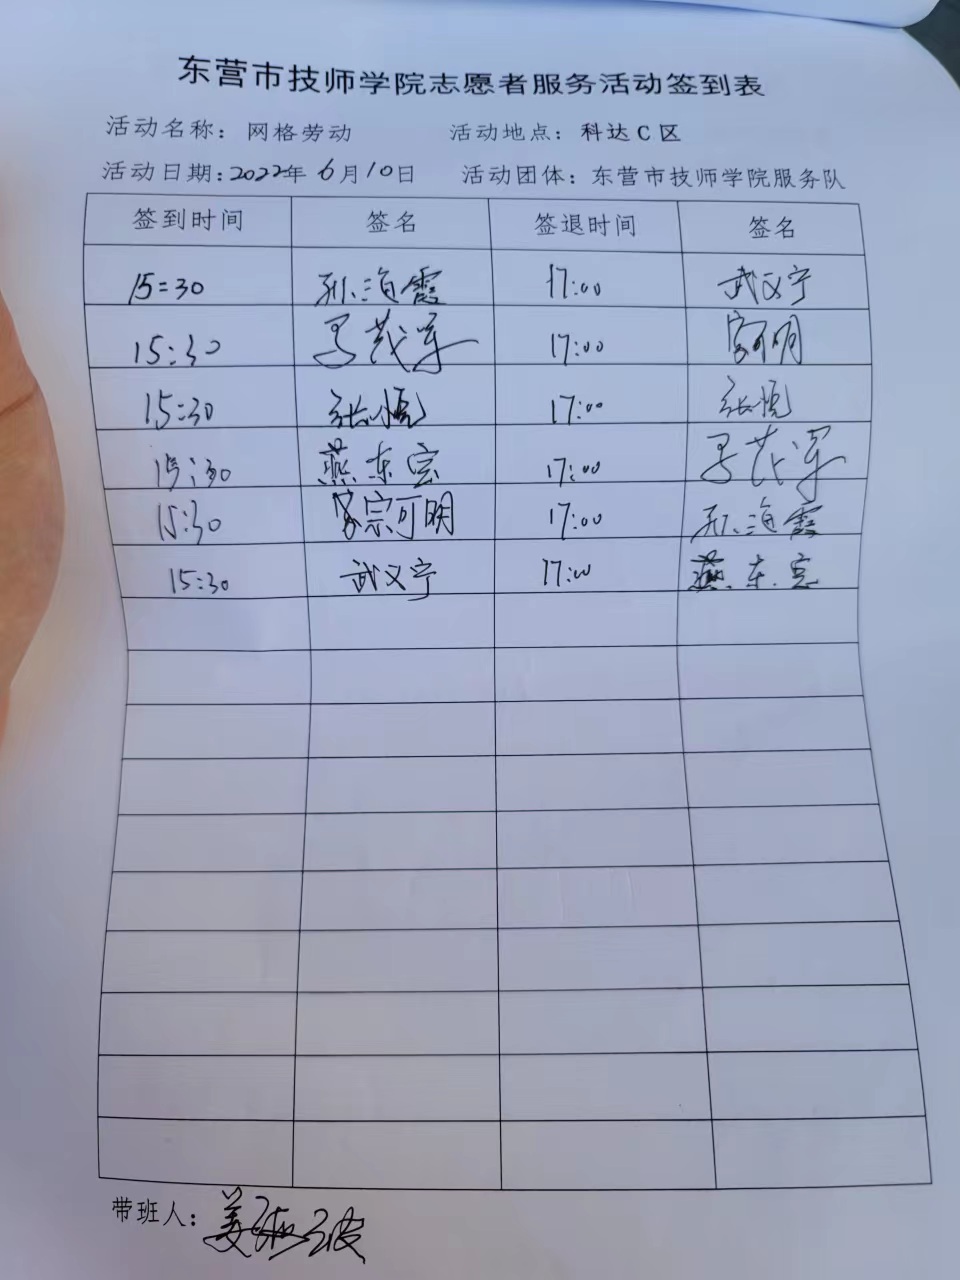 东营市技师学院志愿者服务活动签到表
活动名称：网格劳动 活动地点：科达C区
活动日期：2022年6月10日 活动团体：东营市技师学院服务队
签到时间 签名 签退时间 签名
15:30 孙海霞 17:00 武义宁
15:30 17:00 宗可明
15:30 张悦 17:00 张悦
15:30 燕东宗 17:00
15:30 宗可明 17:00 孙海霞
15:30 武义宁 17:00 燕东宗
带班人：姜